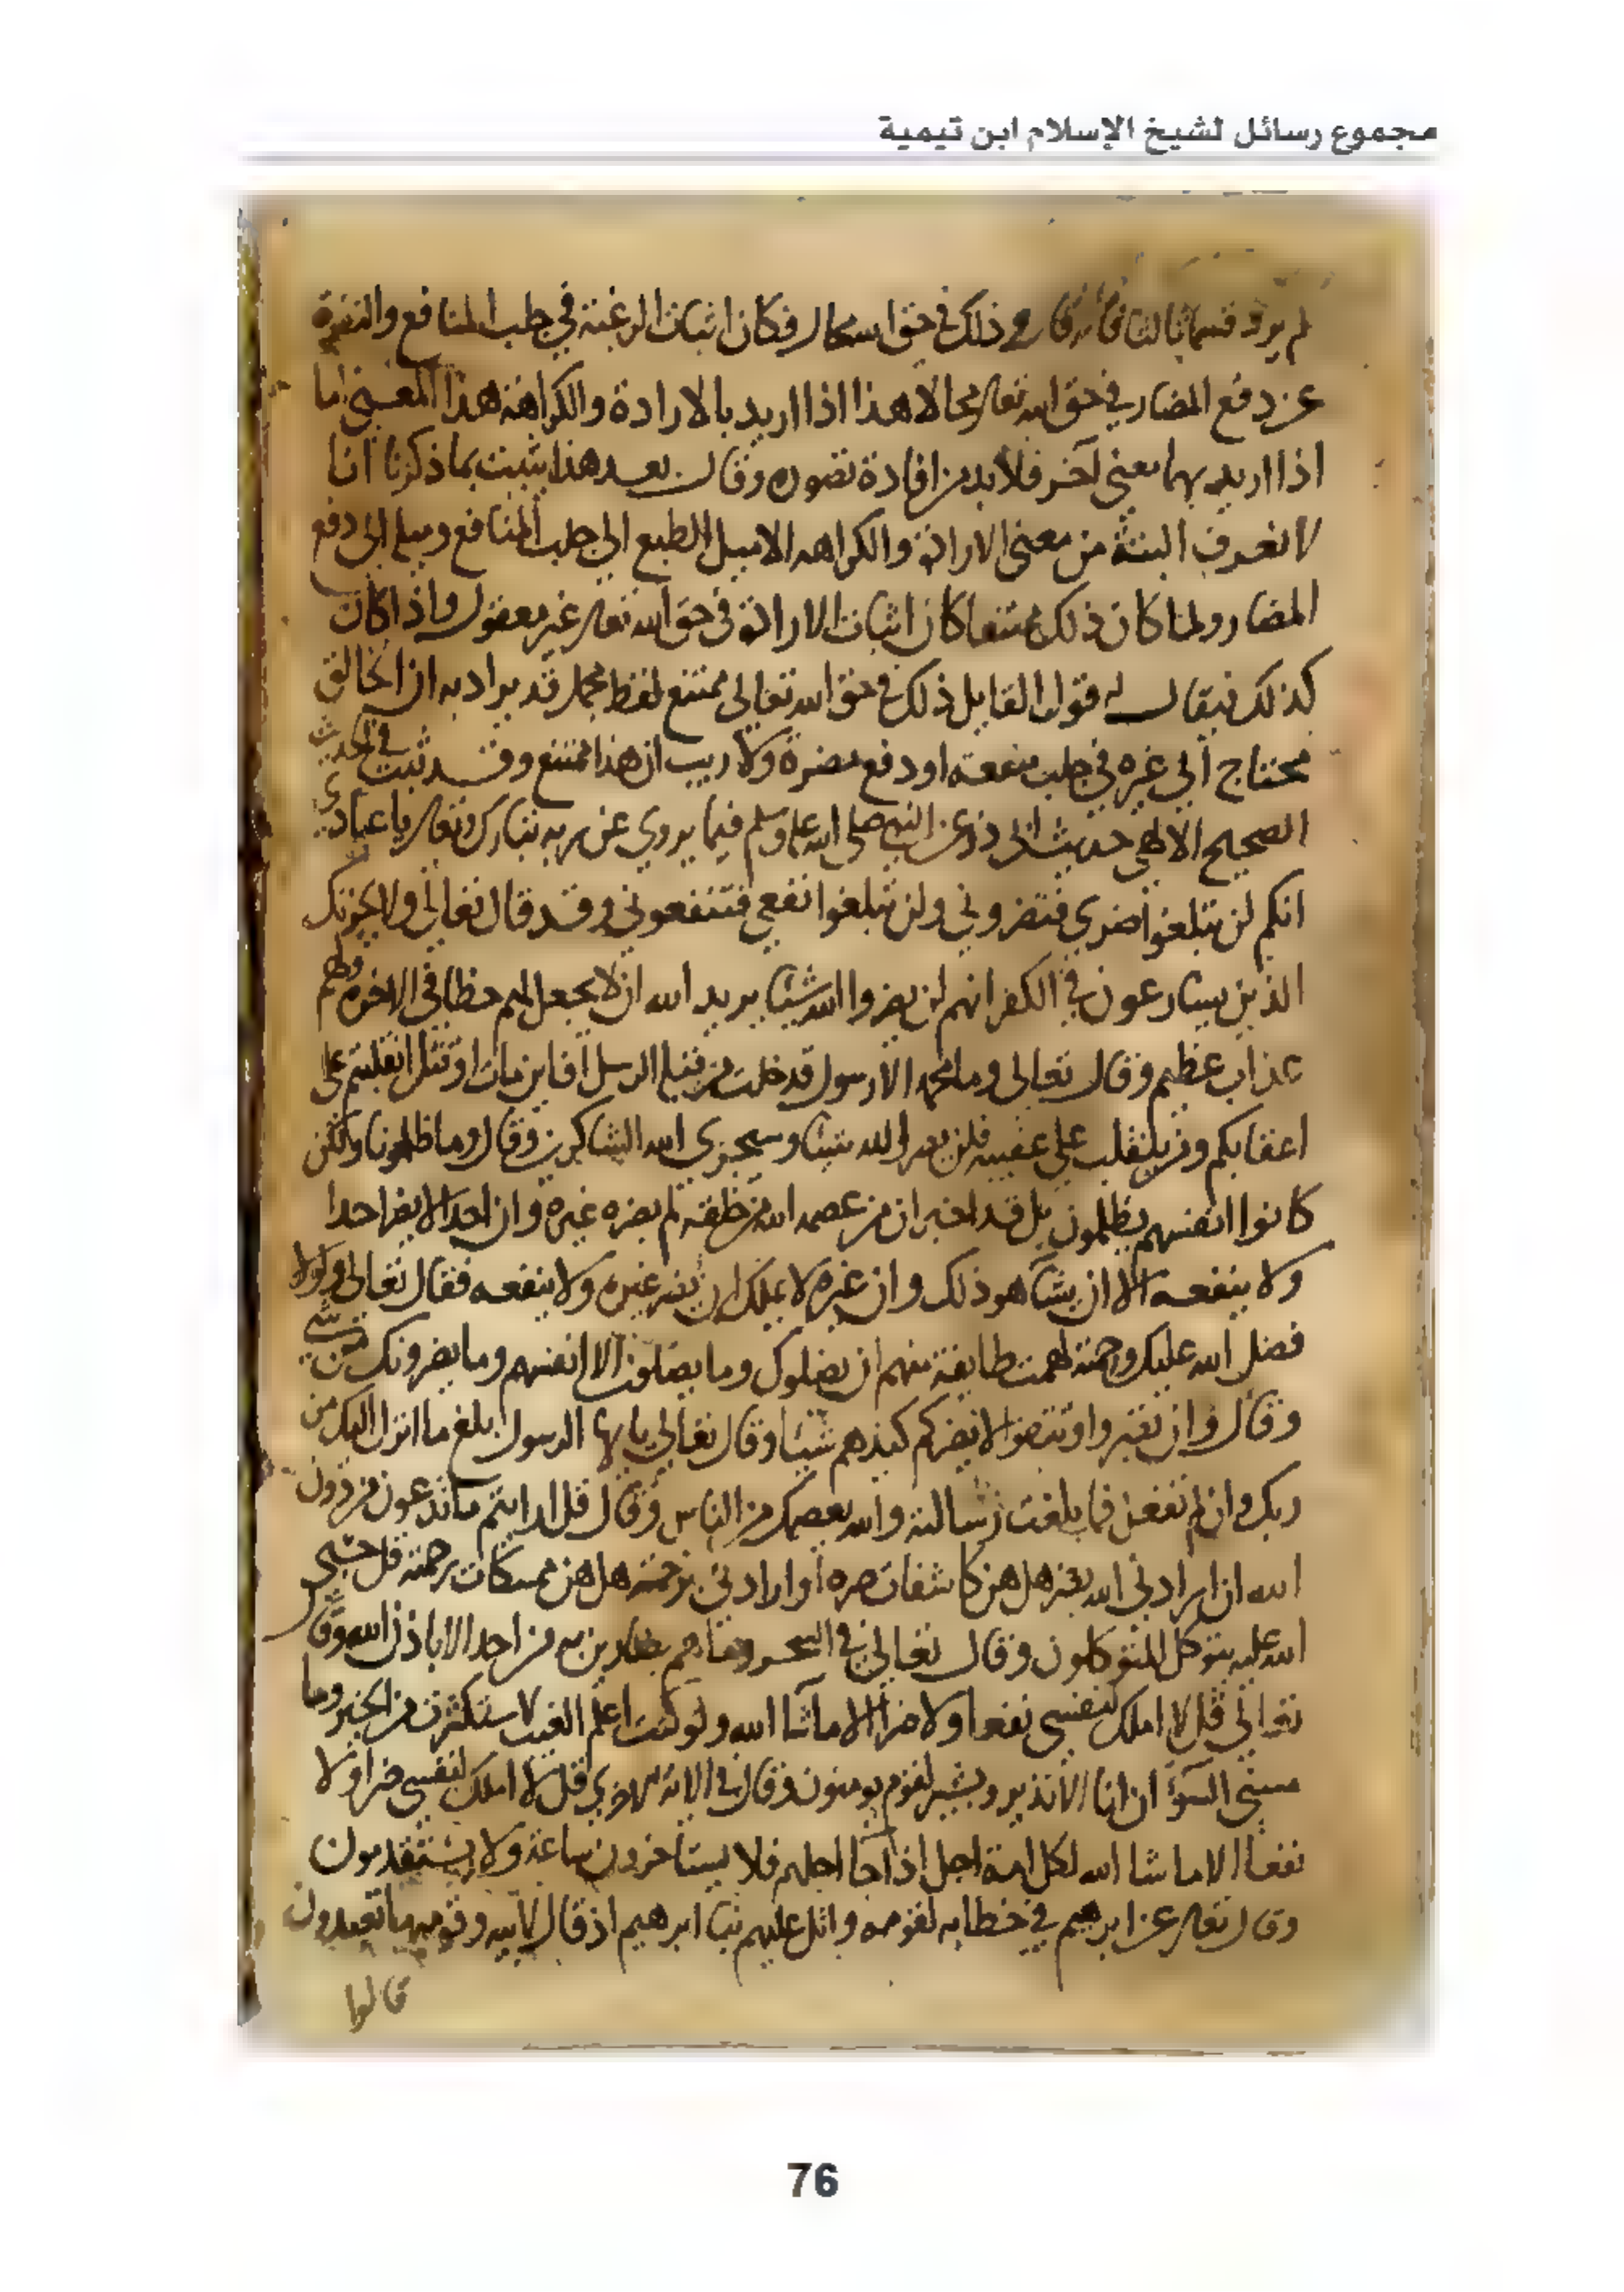 مجموع رسائل لشيخ الإسلام ابن تيمية
لم يرد قسما ثالثا ذلك في حق الله محال فكان اثبات الرغبة في جلب المنافع والنفرة
عن دفع المضار في حق الله تعالى محالا هذا اذا اريد بالارادة والكراهة هذا المعنى اما
اذا اريد بهما معنى آخر فلا بد من افادة تصوره وقال بعد هذا يثبت بما ذكرنا انا
لا نعرف البتة من معنى الارادة والكراهه الا ميل الطبع الى جلب المنافع وميله الى دفع
المضار ولما كان ذلك ممتنعا كان اثبات الارادة في حق الله تعالى غير معقول واذا كان
كذلك فيقال له قول القايل ذلك في حق الله تعالى ممتنع لفظ مجمل قد يراد به ان الخالق
محتاج الى غيره في جلب منفعته او دفع مضرة ولا ريب ان هذا ممتنع وقد ثبت في الحديث
الصحيح الالهي حديث ابى ذر عن النبي صلى الله عليه وسلم فيما يروي عن ربه تبارك وتعالى يا عبادي
انكم لن تبلغوا ضري فتضروني ولن تبلغوا نفعي فتنفعوني وقد قال تعالى ولا يحزنك
الذين يسارعون في الكفر انهم لن يضروا الله شيئا يريد الله ان لا يجعل لهم حظا في الاخرة ولهم
عذاب عظيم وقال تعالى وما محمد الا رسول قد خلت من قبله الرسل افاين مات او قتل انقلبتم على
اعقابكم ومن ينقلب على عقبيه فلن يضر الله شيئا وسيجزي الله الشاكرين وقال وما ظلمونا ولكن
كانوا انفسهم يظلمون بل قد اخبر ان من عصمه الله من خلقه لم يضره غيره وان احدا لا يضر احدا
ولا ينفعه الا ان يشآ هو ذلك وان غيره لا يملك ان يضر غيره ولا ينفعه فقال تعالى ولولا
فضل الله عليك ورحمته لهمت طايفة منهم ان يضلوك وما يضلون الا انفسهم وما يضرونك من شي
وقال وان تصبروا وتتقوا لا يضركم كيدهم شيئا وقال تعالى يا يها الرسول بلغ ما انزل اليك من
ربك وان لم تفعل فما بلغت رسالته والله يعصمك من الناس وقال قل افرايتم ما تدعون من دون
الله ان ارادني الله بضر هل هن كاشفات ضره او ارادني برحمة هل هن ممسكات رحمته قل حسبي
الله عليه يتوكل المتوكلون وقال تعالى في السحر وما هم بضارين به من احد الا باذن الله وقال
تعالى قل لا املك لنفسي نفعا ولا ضرا الا ما شآ الله ولو كنت اعلم الغيب لاستكثرت من الخير وما
مسني السوٓء ان انا الا نذير وبشير لقوم يومنون وقال في الاية الاخرى قل لا املك لنفسي ضرا ولا
نفعا الا ما شا الله لكل امة اجل اذا جآ اجلهم فلا يستأخرون ساعة ولا يستقدمون
وقال تعالى عن ابرهيم في خطابه لقومه واتل عليهم نبا ابرهيم اذ قال لابيه وقومه ما تعبدون
قالوا
76